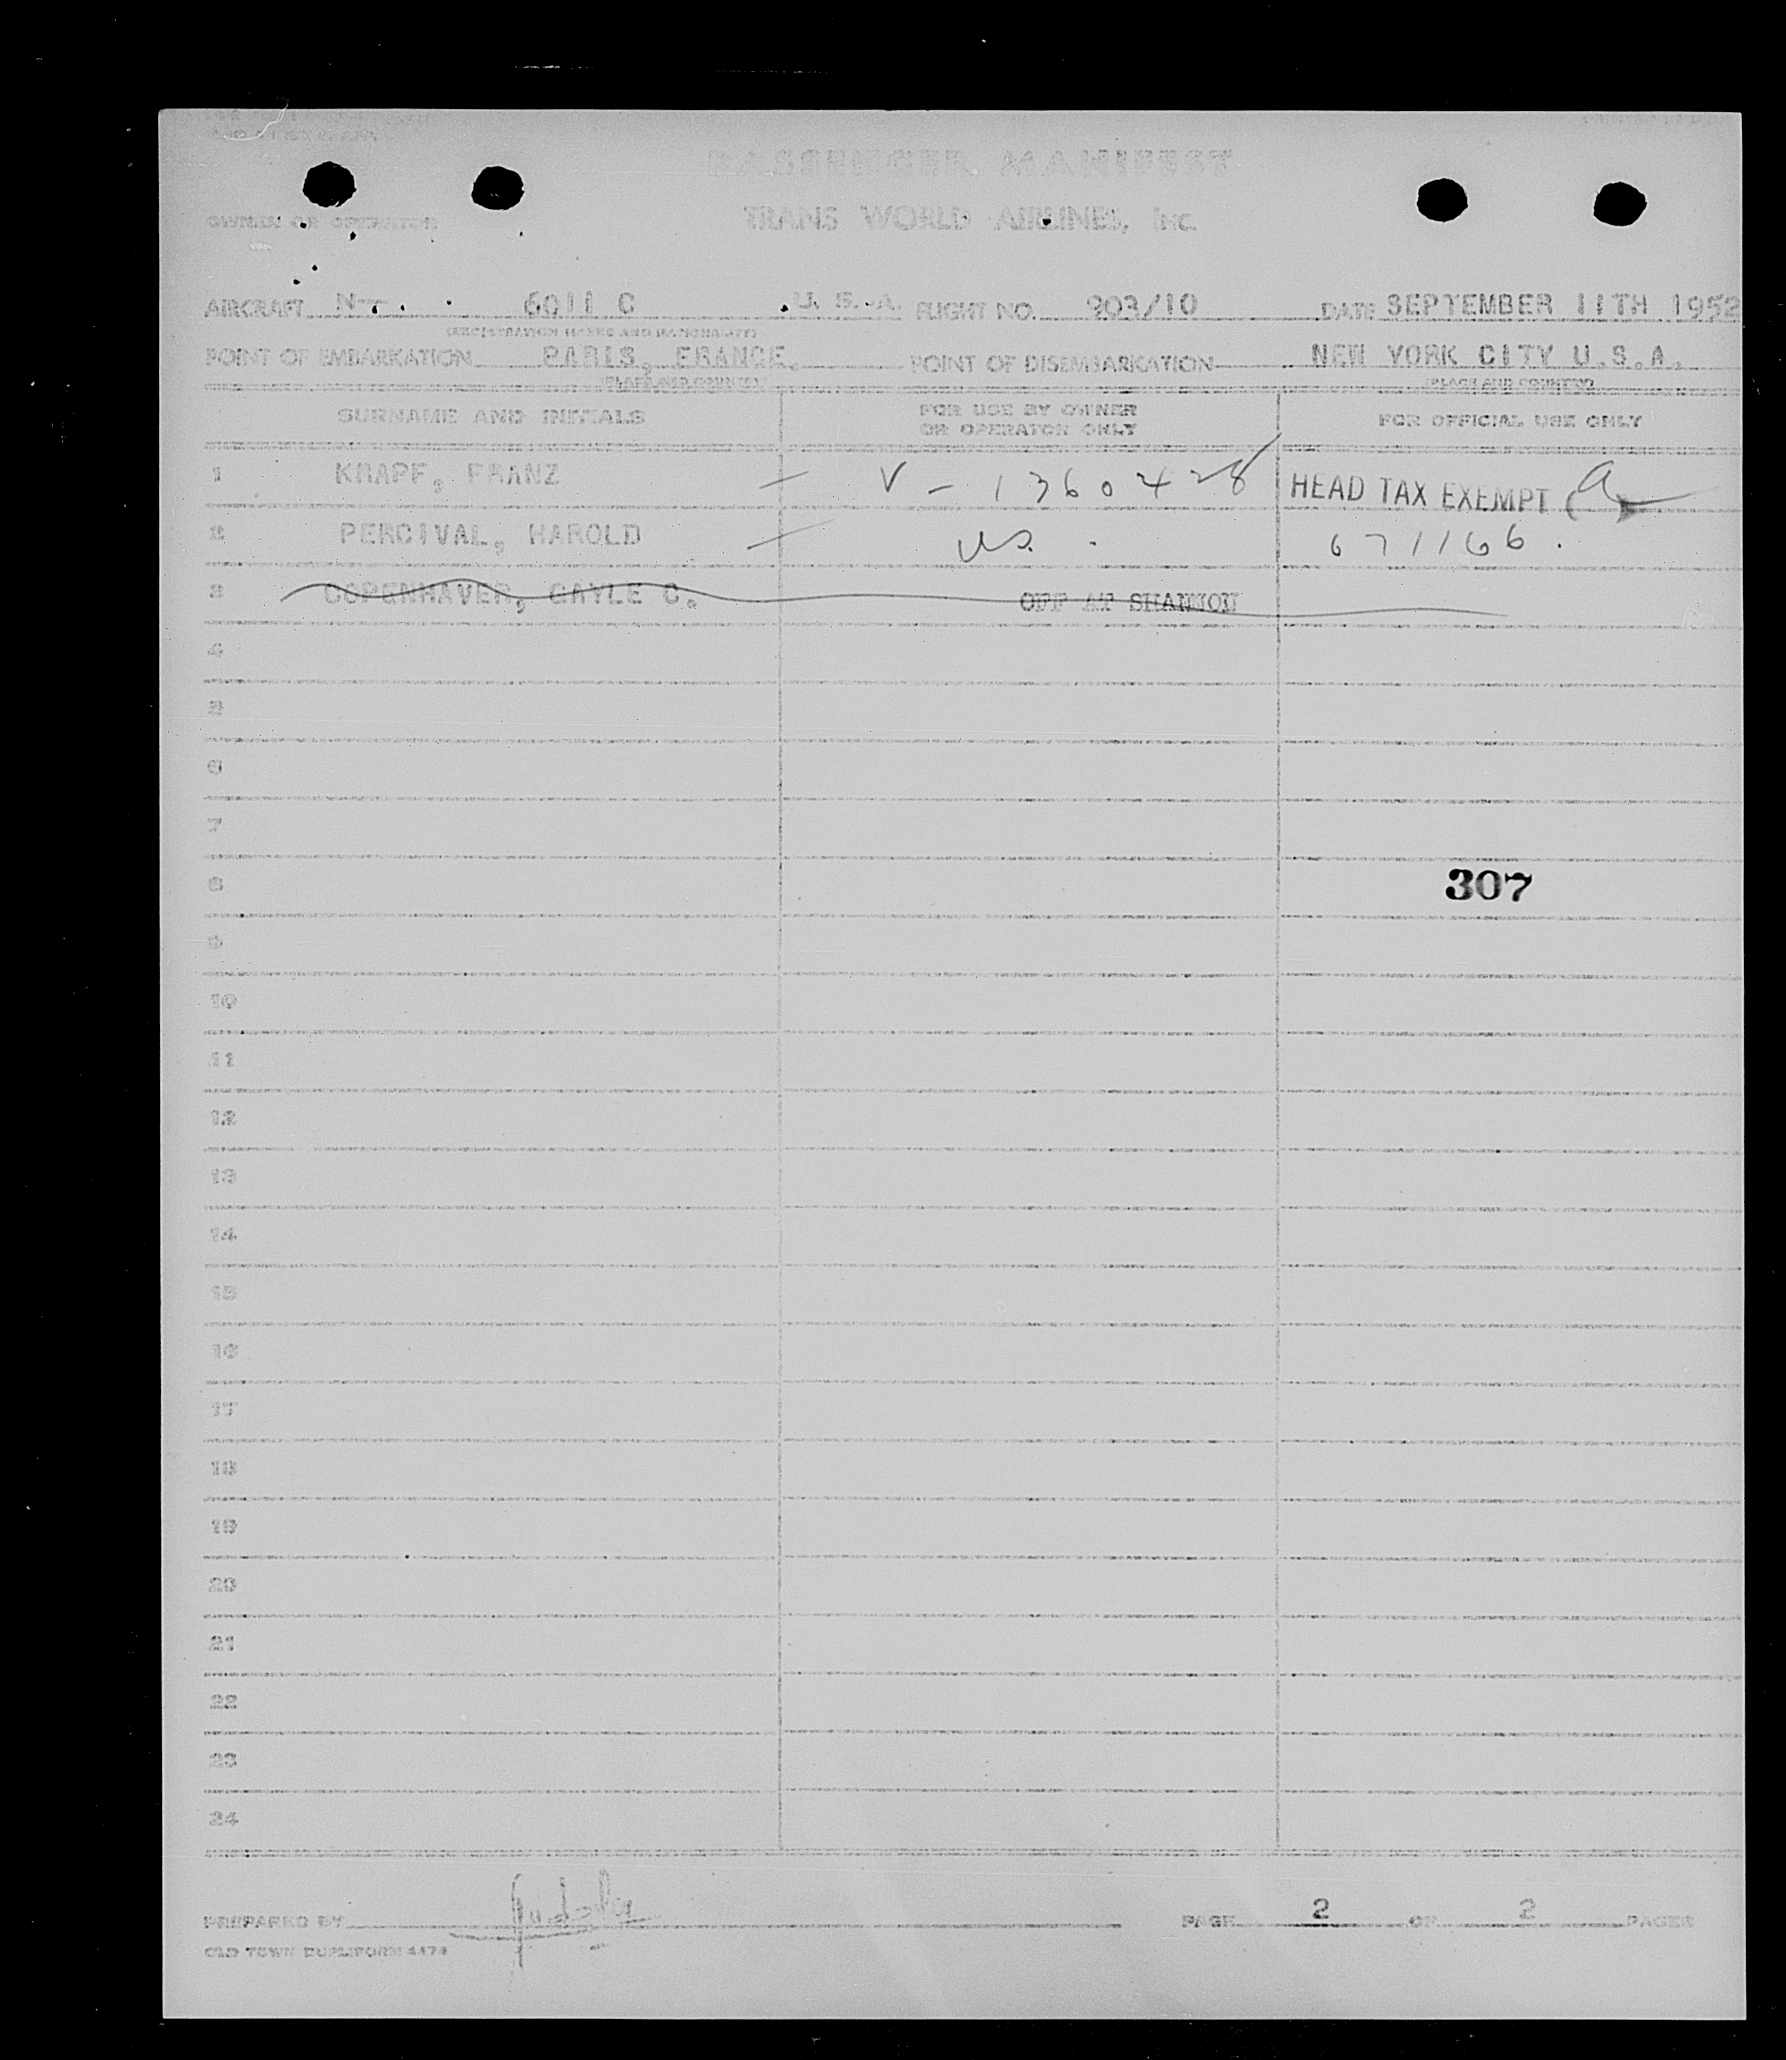 PASSENGER MANIFEST
OWNER OR OPERATOR TRANS WORLD AIRLINES, INC.
AIRCRAFT N- 6011 C U. S. A. FLIGHT NO. 903/10 DATE SEPTEMBER 11TH 1952
(REGISTRATION MARKS AND NATIONALITY)
POINT OF EMBARKATION PARIS, FRANCE. POINT OF DISEMBARKATION NEW YORK CITY U.S.A.
(PLACE AND COUNTRY) (PLACE AND COUNTRY)
SURNAME AND INITIALS FOR USE BY OWNER OR OPERATOR ONLY FOR OFFICIAL USE ONLY
1 KNAPF, FRANZ — V - 1360428 HEAD TAX EXEMPT (a
2 PERCIVAL, HAROLD — US. - 671166.
3 COPENHAVER, GAYLE C. OFF AT SHANNON
4
5
6
7
8 307
9
10
11
12
13
14
15
16
17
18
19
20
21
22
23
24
PREPARED BY PAGE 2 OF 2 PAGES
OLD TOWN DUPLIFORM 4474